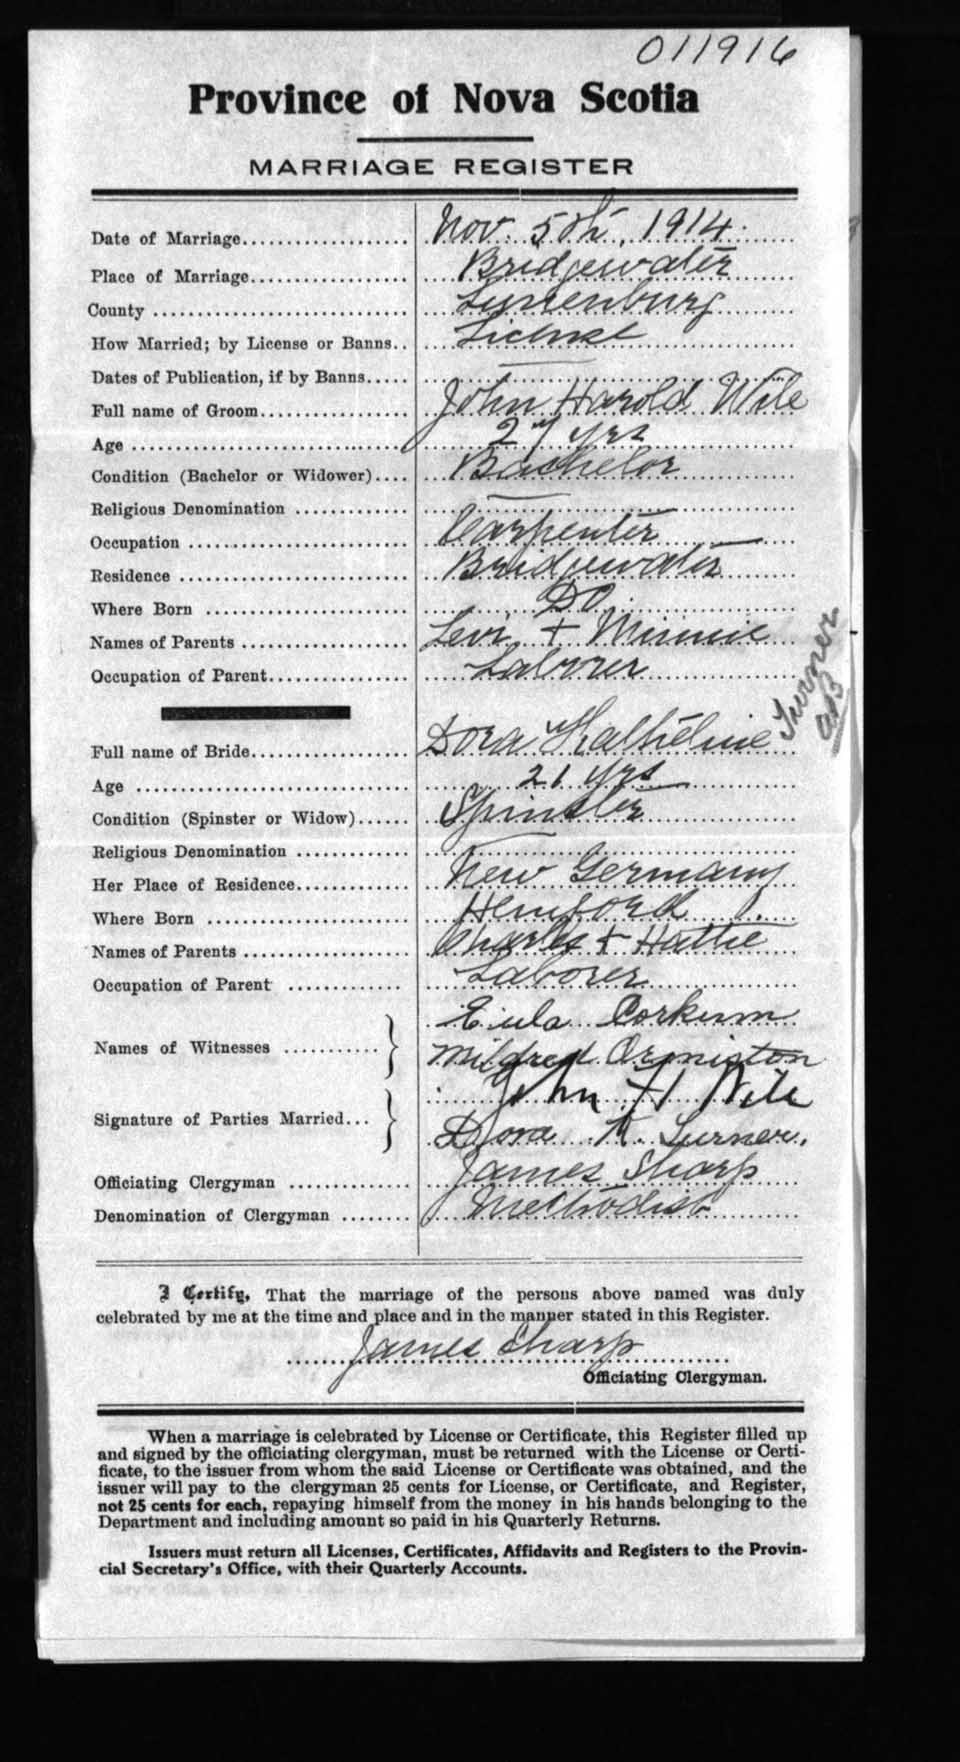 011916
Province of Nova Scotia
MARRIAGE REGISTER
Date of Marriage................... Nov. 5th, 1914.
Place of Marriage.................. Bridgewater
County ............................. Lunenburg
How Married; by License or Banns.. License
Dates of Publication, if by Banns..... —
Full name of Groom................. John Harold Wile
Age ............................... 27 yrs
Condition (Bachelor or Widower).... Bachelor
Religious Denomination ............. —
Occupation ......................... Carpenter
Residence .......................... Bridgewater
Where Born ....................... DO.
Names of Parents ................... Levi + Minnie
Occupation of Parent................ Laborer
Full name of Bride.................. Dora Kathleline Turner
Age ............................... 21 yrs
Condition (Spinster or Widow)...... Spinster
Religious Denomination ............. —
Her Place of Residence............. New Germany
Where Born ....................... Hemford
Names of Parents ................... Charles + Hattie
Occupation of Parent ............. Laborer
Names of Witnesses ........... Eula Corkum
Mildred Ormiston
Signature of Parties Married... John H Wile
Dora K. Turner.
Officiating Clergyman .............. James Sharp
Denomination of Clergyman ........ Methodist
I Certify, That the marriage of the persons above named was duly
celebrated by me at the time and place and in the manner stated in this Register.
James Sharp
Officiating Clergyman.
When a marriage is celebrated by License or Certificate, this Register filled up
and signed by the officiating clergyman, must be returned with the License or Certi-
ficate, to the issuer from whom the said License or Certificate was obtained, and the
issuer will pay to the clergyman 25 cents for License, or Certificate, and Register,
not 25 cents for each, repaying himself from the money in his hands belonging to the
Department and including amount so paid in his Quarterly Returns.
Issuers must return all Licenses, Certificates, Affidavits and Registers to the Provin-
cial Secretary's Office, with their Quarterly Accounts.